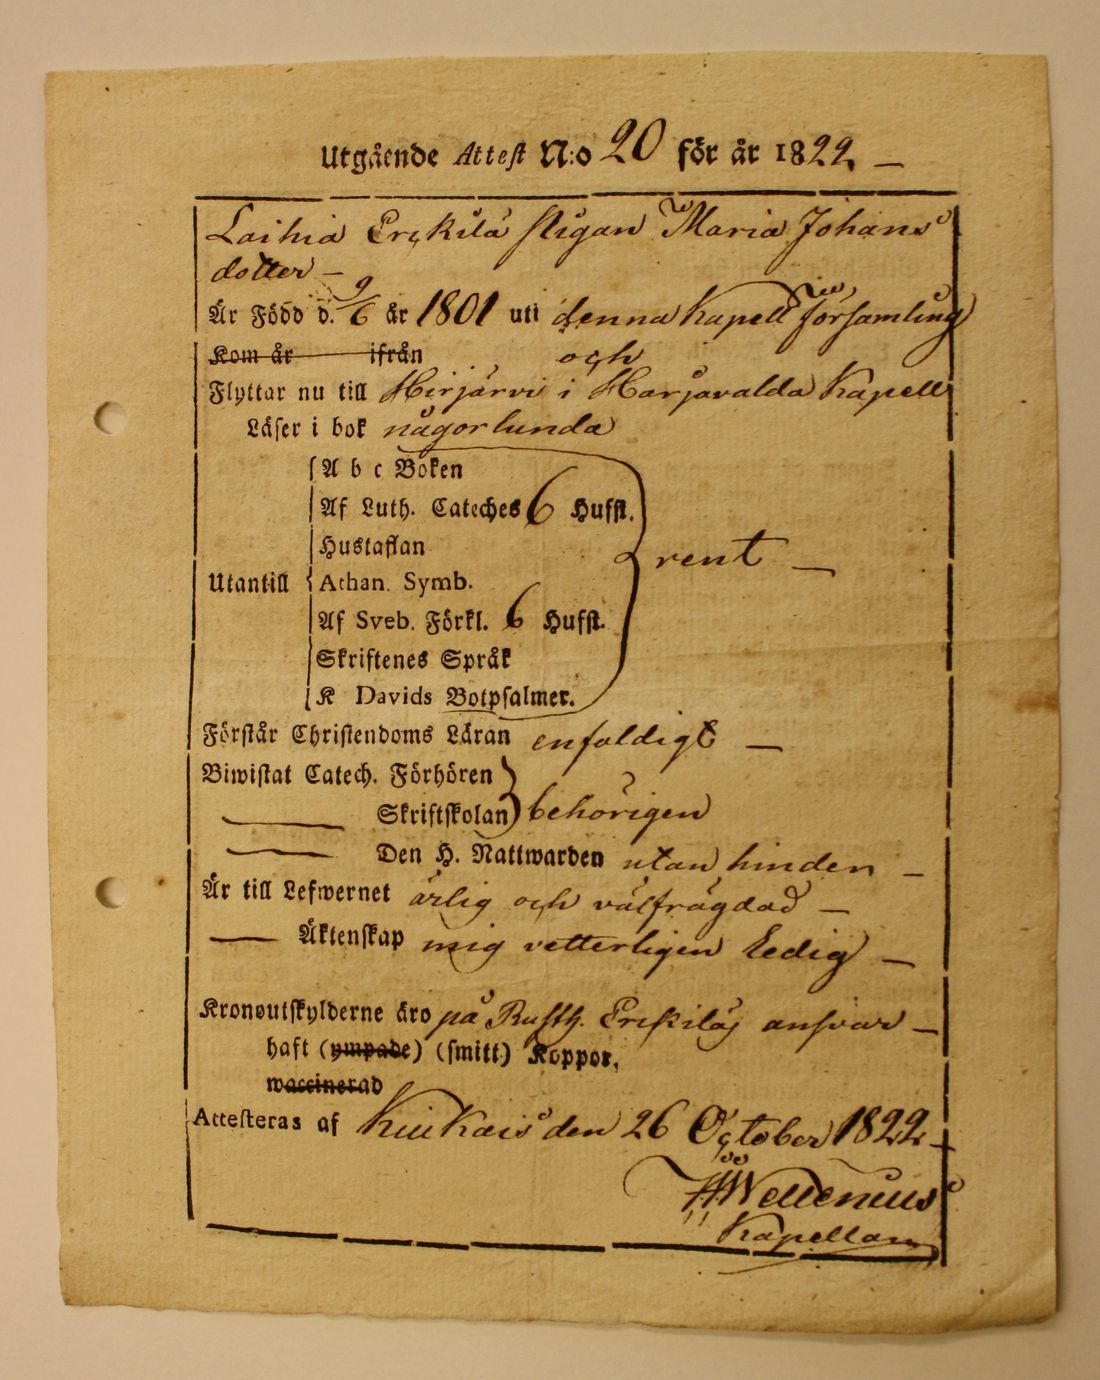 Utgående Attest N:o 20 för år 1822 —
Laihia Erckilä pigan Maria Johans
dotter —
Är Född d. 9/6 år 1801 uti denna Kapell Församling
Kom år ifrån och
Flyttar nu till Hirjärvi i Harjavalda Kapell
Läser i bok någorlunda
A b c Boken
Af Luth. Cateches 6 Hufst.
Hustaflan
rent —
Utantill Athan. Symb.
Af Sveb. Förkl. 6 Hufst.
Skriftenes Språk
K Davids Botpsalmer.
Förstår Christendoms Läran enfaldigt —
Biwistat Catech. Förhören
— Skriftskolan behörigen
— Den H. Nattwarden utan hinder —
Är till Lefwernet ärlig och välfrägdad —
— Äktenskap mig vetterligen Ledig —
Kronoutskylderne äro på Rusth. Erckiläs ansvar —
haft (ympade) (smitt) Koppor,
waccinerad
Attesteras af Kiukais den 26 October 1822 —
Wellenius
Kapellan